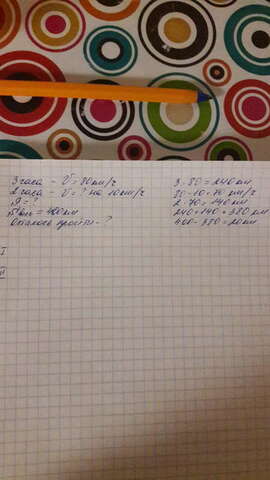 3 часа - V = 80 км/ч
2 часа - V = ? на 10 км/ч
= ?
= 400 км
Осталось пройти - ?
3 · 80 = 240 км
80 - 10 = 70 км/ч
2 · 70 = 140 км
240 + 140 = 380 км
400 - 380 = 20 км
I
II